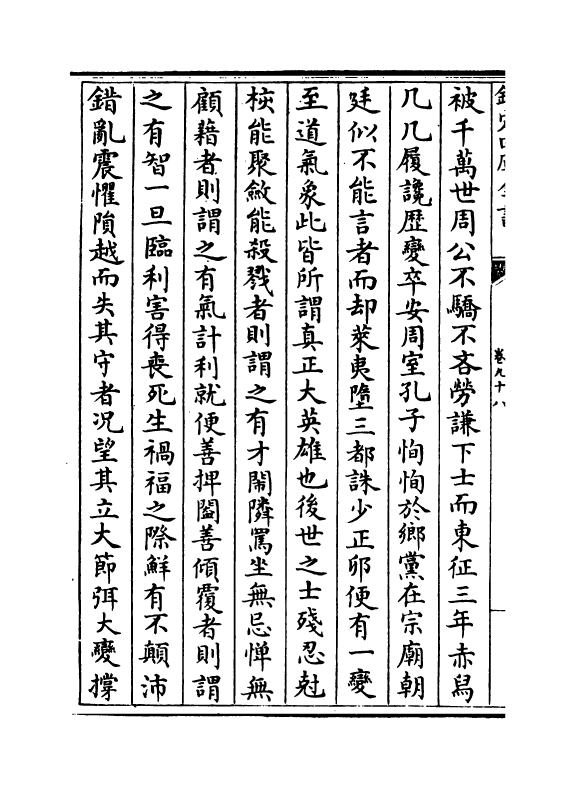 被千萬世周公不驕不吝勞謙下士而東征三年赤舄
几几履讒歴變卒安周室孔子恂恂於鄉黨在宗廟朝
廷似不能言者而却萊夷墮三都誅少正卯便有一變
至道氣象此皆所謂真正大英雄也後世之士殘忍尅
核能聚斂能殺戮者則謂之有才閙隣罵坐無忌憚無
顧藉者則謂之有氣計利就便善捭闔善傾覆者則謂
之有智一旦臨利害得喪死生禍福之際鮮有不顛沛
錯亂震懼隕越而失其守者况望其立大節弭大變撐
卷九十八